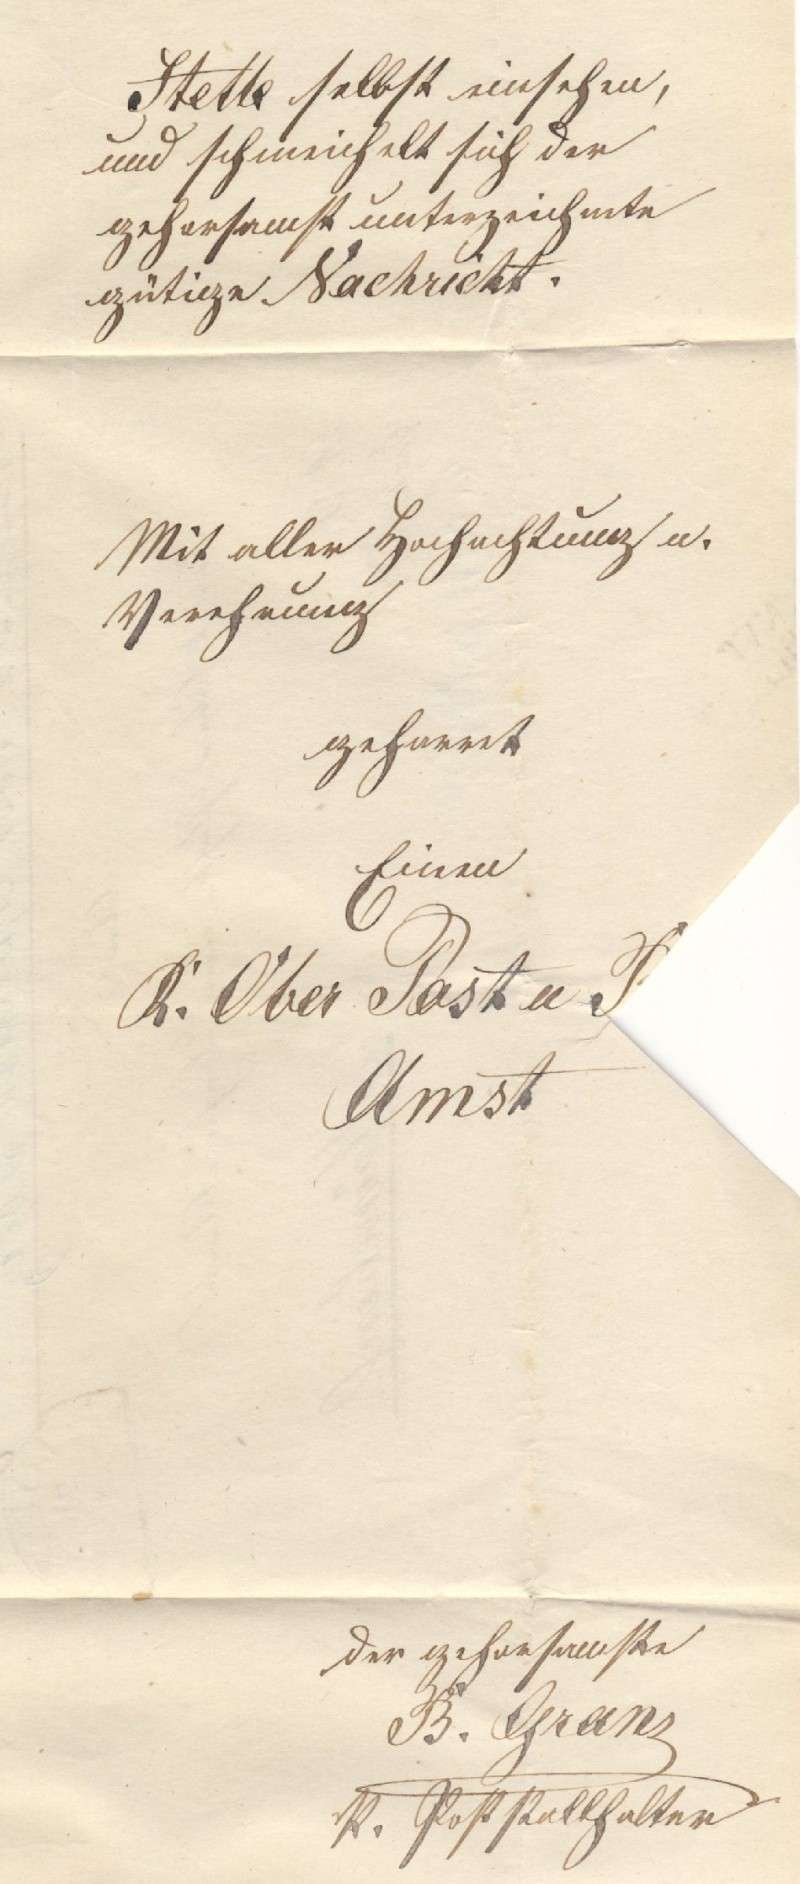 Stelle selbst einsehen,
und schmeichelt sich der
gehorsamst unterzeichnete
gütige Nachricht.
Mit aller Hochachtung u.
Verehrung
geharret
Einen
K. Ober Post u
Amst
der gehorsamste
B. Granz
K. Poststallhalter